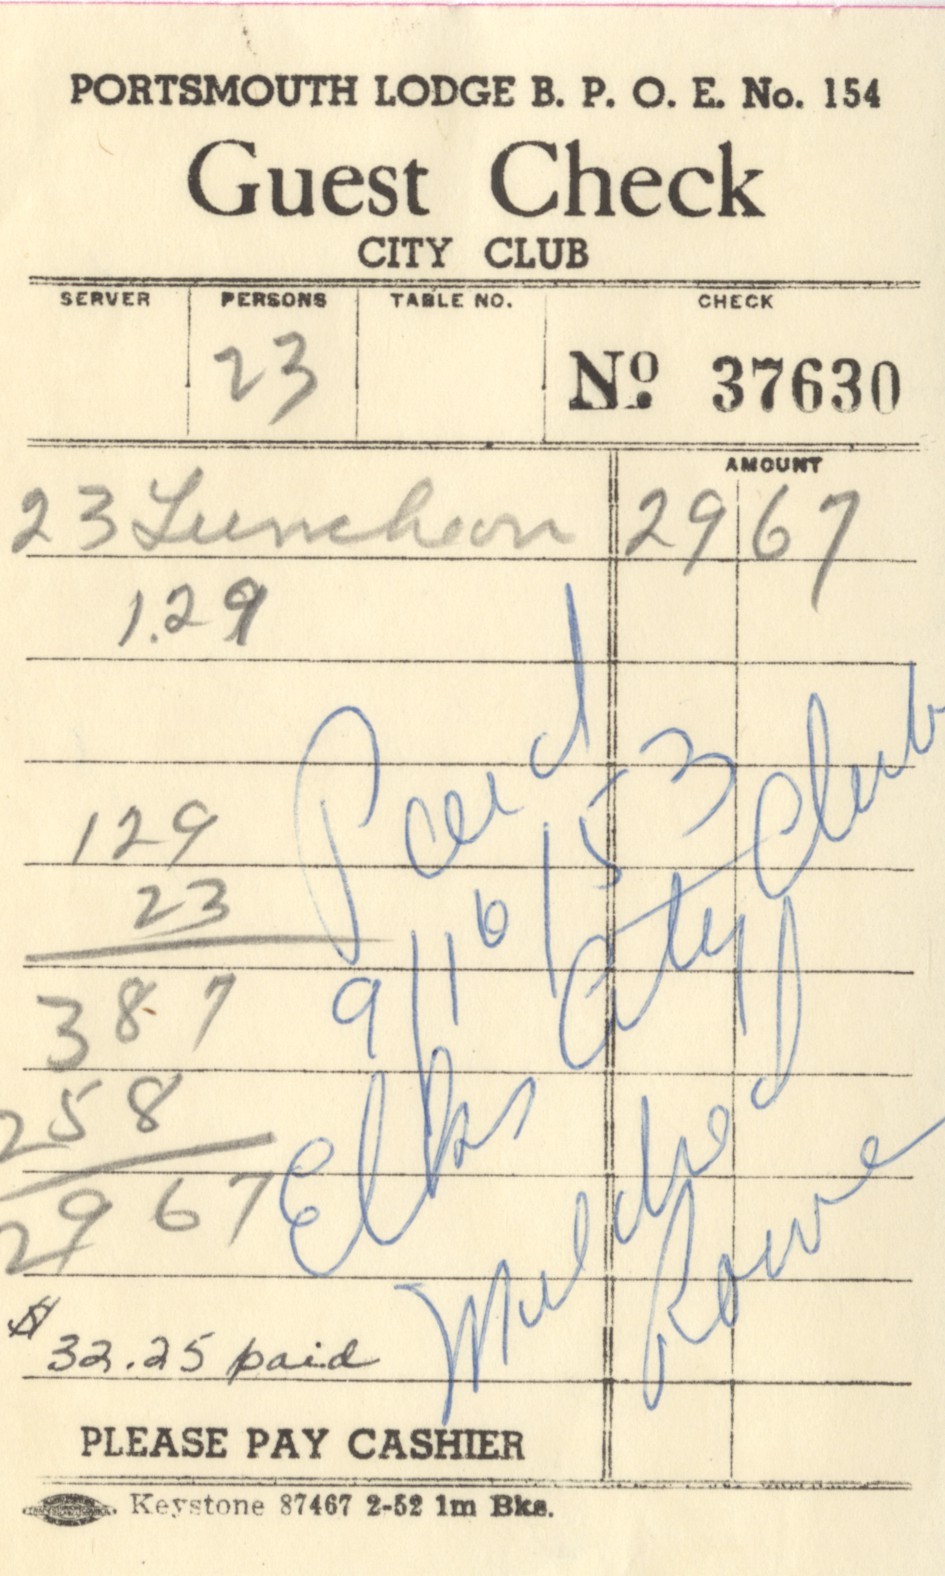 PORTSMOUTH LODGE B. P. O. E. No. 154
Guest Check
CITY CLUB
SERVER PERSONS TABLE NO. CHECK
23 No 37630
AMOUNT
23 Luncheon 29 67
1.29
129
23
387
258
2967
Paid
9/16/53
Elks City Club
Mildred
Rowe
$32.25 paid
PLEASE PAY CASHIER
Keystone 87467 2-52 1m Bks.